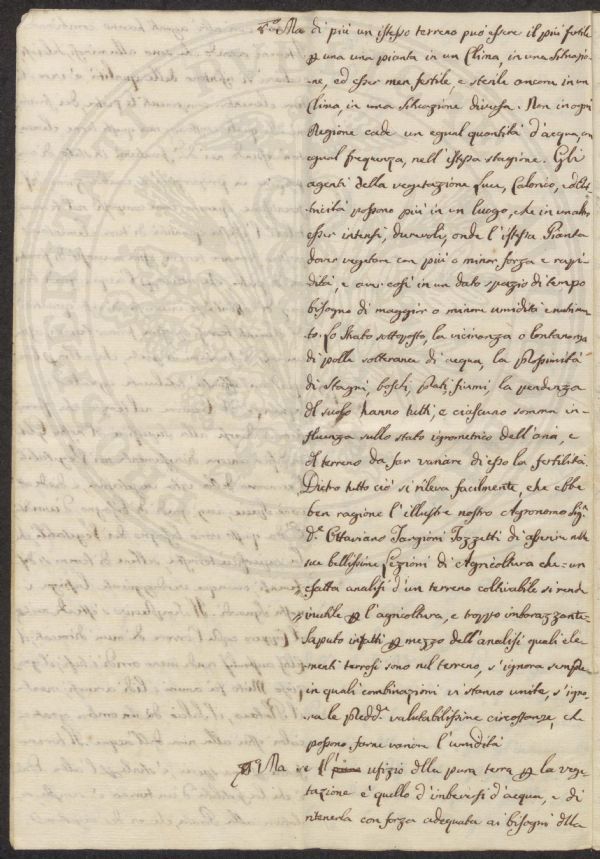 5.º Ma di più un istesso terreno può essere il più fertile
p una una pianta in un Clima, in una Situazio-
ne, ed esser men fertile, e sterile ancora in un
Clima, in una Situazione diversa. Non in ogni
Regione cade un egual quantità d'acqua, con
egual frequenza, nell'istessa stagione. Gli
agenti della vegetazione Luce, Calorico, ed Elet-
tricità possono più in un luogo, che in un altro
esser intensi, durevoli, onde l'istessa Pianta
dover vegetare con più o minor forza e rapi-
dità, e aver così in un dato spazio di tempo
bisogno di maggior o minore umidità e nutrimen-
to. Lo strato sottoposto, la vicinanza o lontananza
di polle sotterranee di acqua, la prossimità
di stagni, boschi, prati, fiumi, la pendenza
del suolo hanno tutti, e ciascuno somma in-
fluenza sullo stato igrometrico dell'aria, e
del terreno da far variare di esso la fertilità.
Dietro tutto ciò si rileva facilmente, che ebbe
ben ragione l'illustre nostro Agronomo Sig.
D.r Ottaviano Targioni Tozzetti di asserire nelle
sue bellissime Lezioni di Agricoltura che = un
esatta analisi d'un terreno coltivabile si rende
inutile p l'agricoltura, e troppo imbarazzante =
Saputo infatti p mezzo dell'analisi quali ele-
menti terrosi sono nel terreno, s'ignora sempre
in quali combinazioni vi stanno unite, s'igno-
ra le predd.e valutabilissime circostanze, che
possono farne variare l'umidità
Ma se l' ufizio della pura terra p la vege-
tazione è quello d'imbeversi d'acqua, e di
ritenerla con forza adequata ai bisogni della